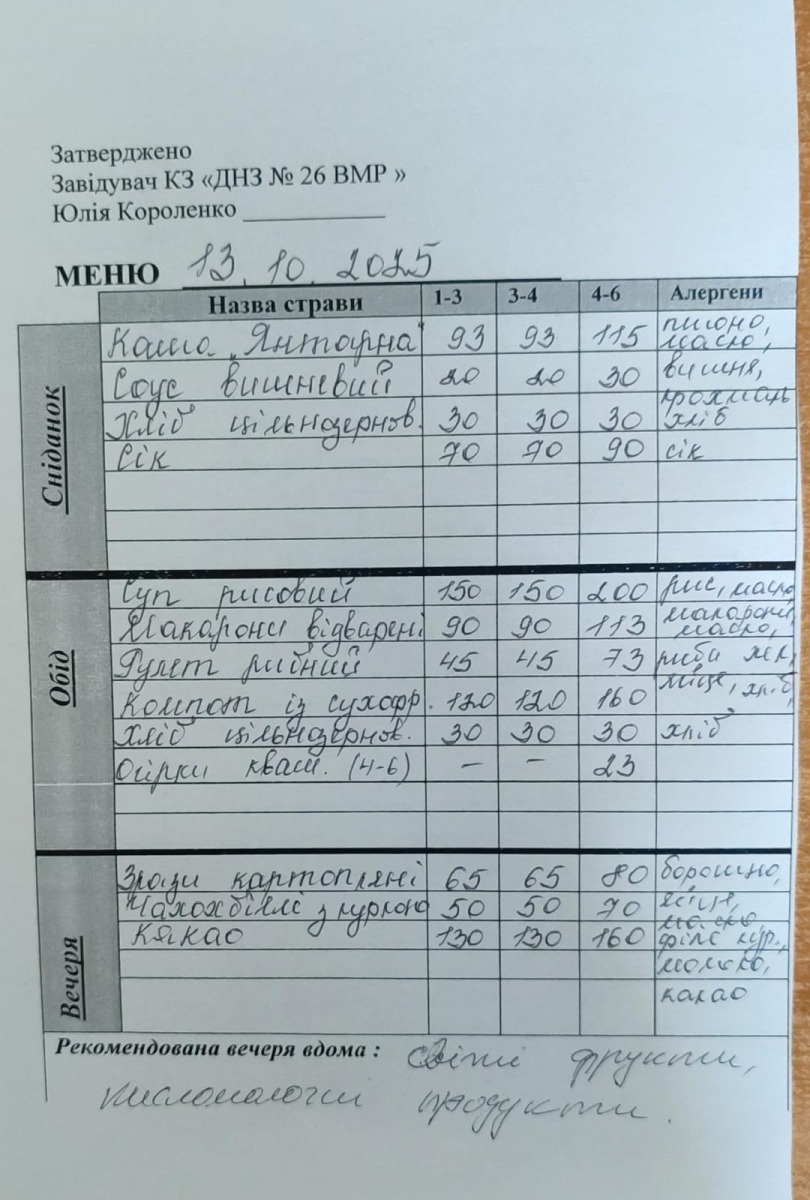 Затверджено
Завідувач КЗ «ДНЗ № 26 ВМР »
Юлія Короленко ____________
МЕНЮ 13.10.2025
Назва страви 1-3 3-4 4-6 Алергени
Сніданок
Каша „Янтарна" 93 93 115 пшоно, масло,
Соус вишневий 20 20 30 вишня, крохмаль
Хліб цільнозернов. 30 30 30 хліб
Сік 70 70 90 сік
Обід
Суп рисовий 150 150 200 рис, масло
Макарони відварені 90 90 113 макарони, масло,
Рулет рибний 45 45 73 риба хек,
Компот із сухофр. 120 120 160 яйце, хліб,
Хліб цільнозернов. 30 30 30 хліб
Огірки кваш. (4-6) – – 23
Вечеря
Зрази картопляні 65 65 80 борошно,
Чахохбіллі з куркою 50 50 70 яйце, масло
Какао 130 130 160 філе кур.,
молоко,
какао
Рекомендована вечеря вдома : свіжі фрукти,
кисломолочні продукти.